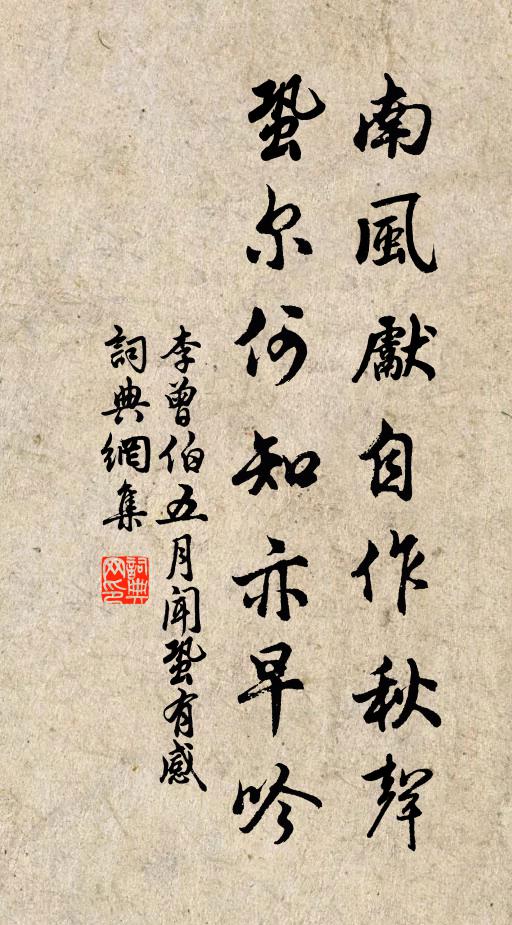 南風獻自作秋聲
蛩尔何知亦早吟
李曾伯五月闻蛩有感
詞典網集
詞典網印